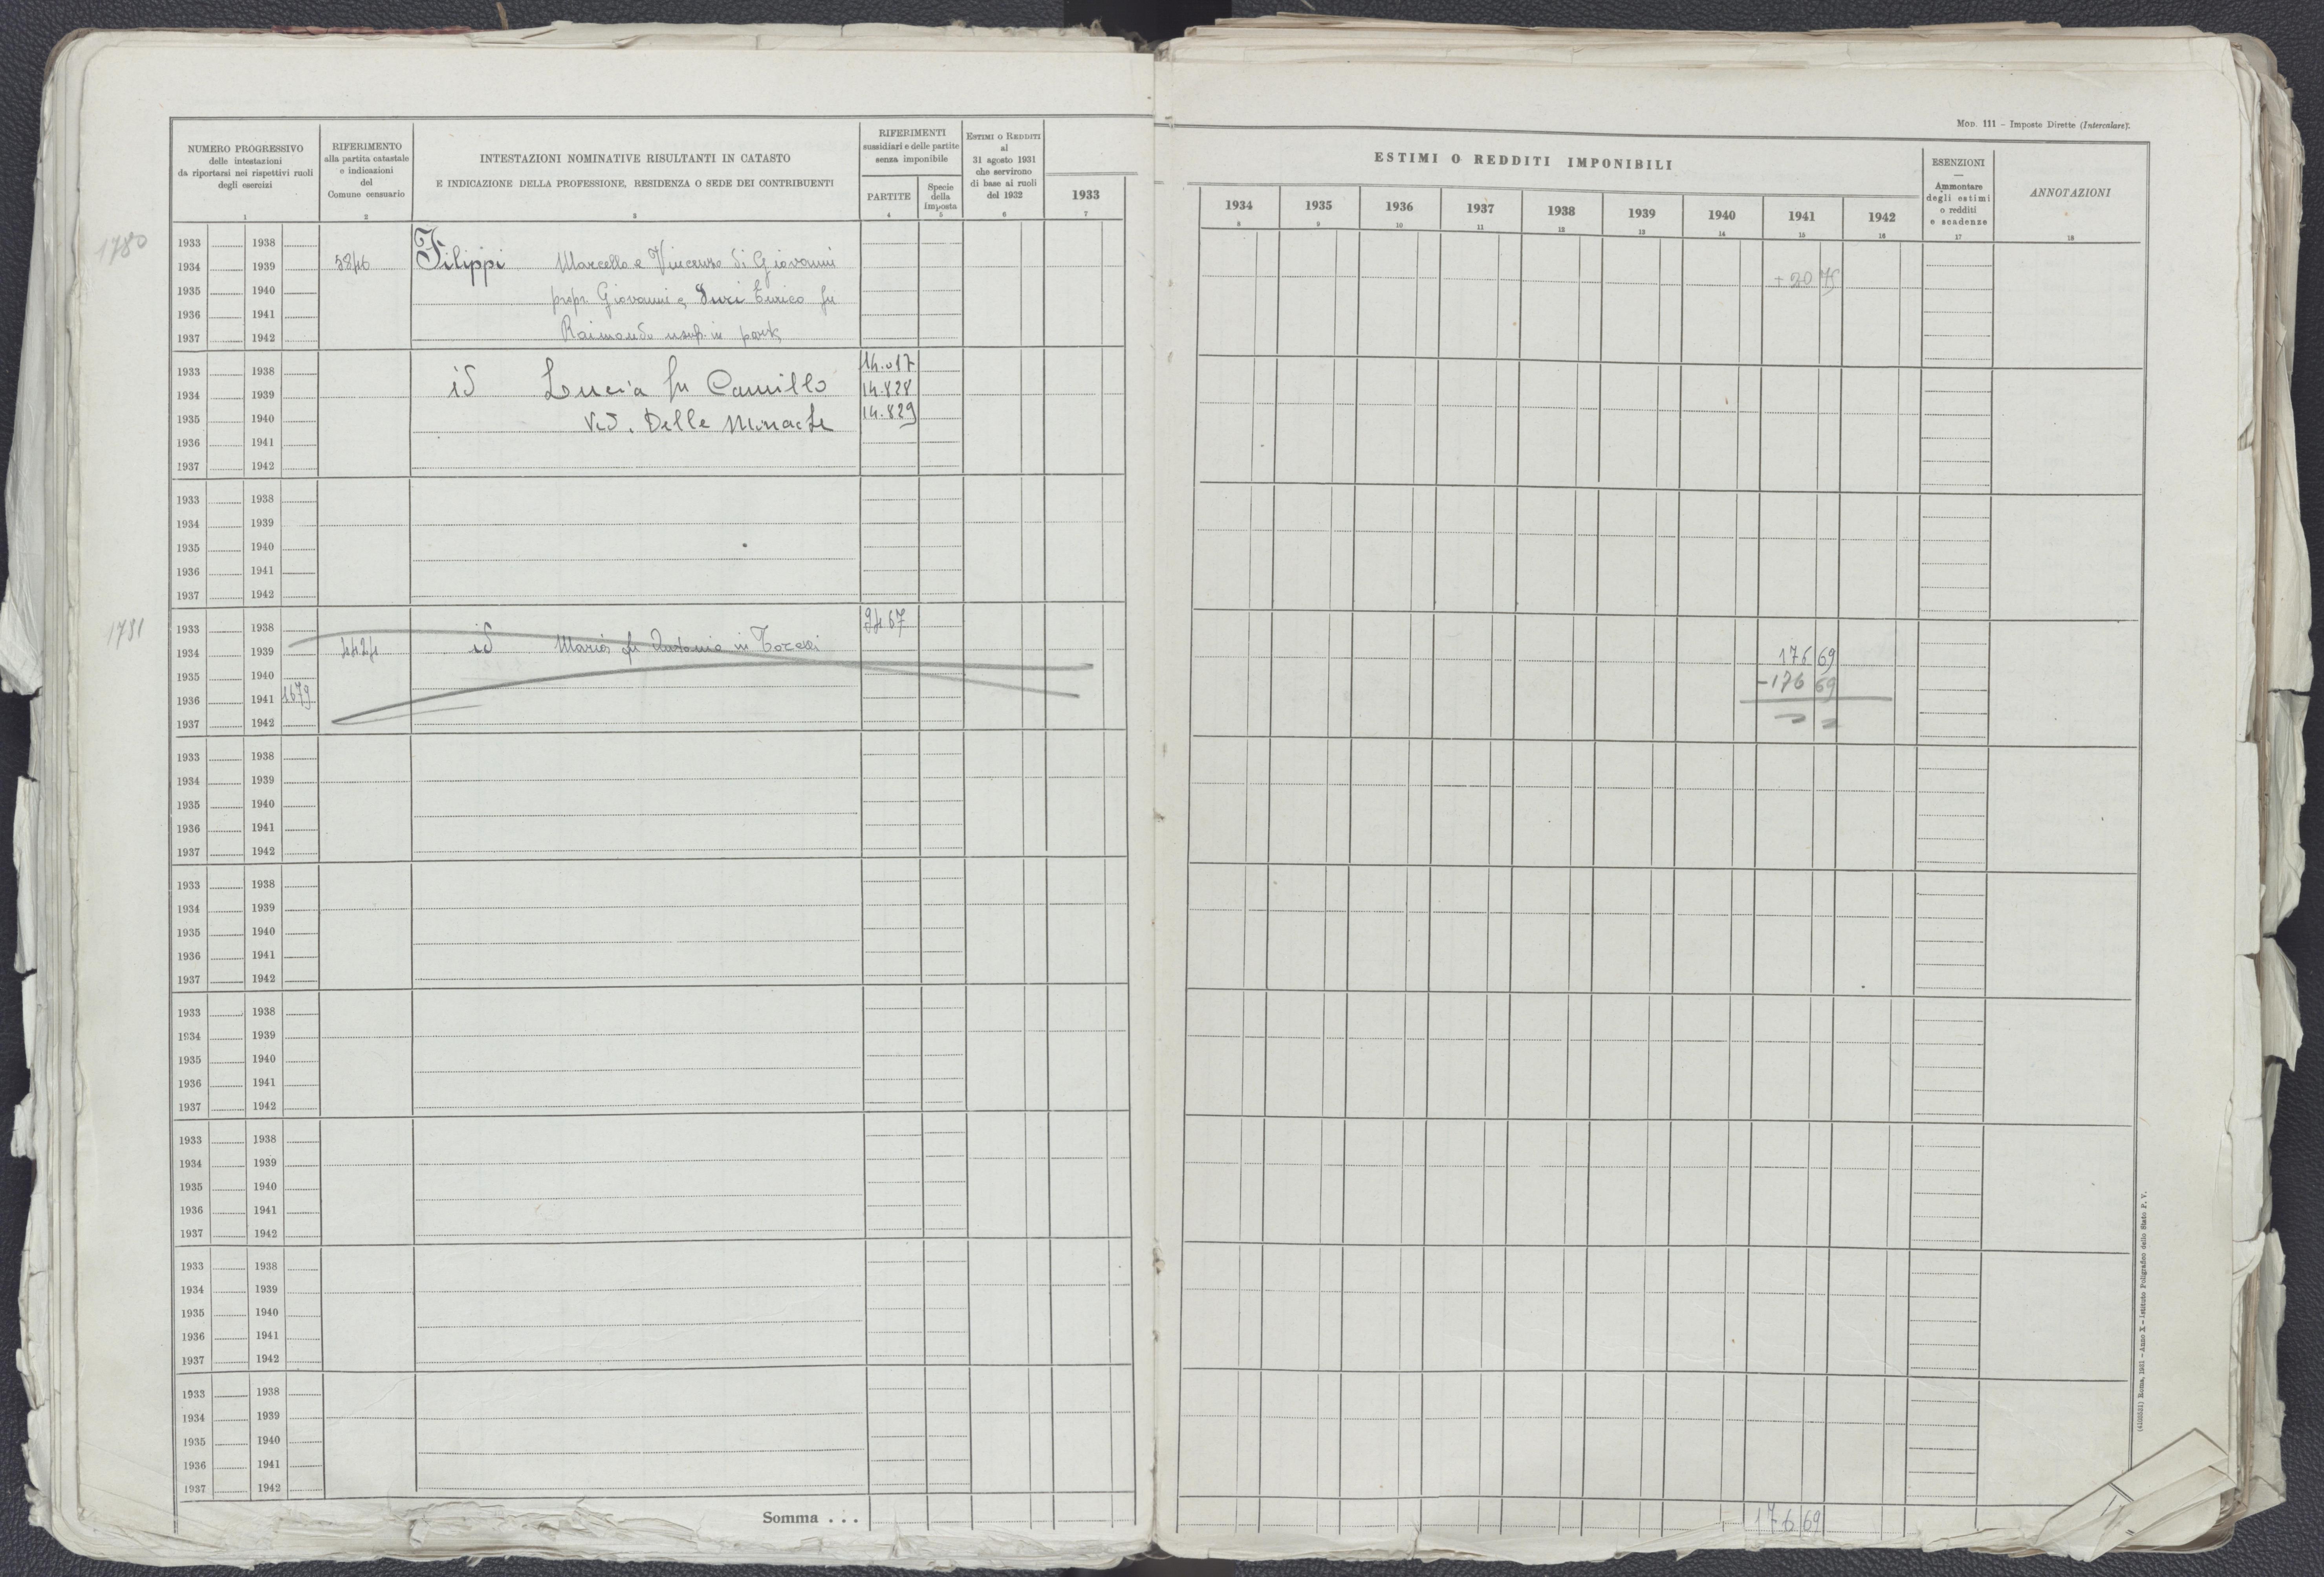 NUMERO PROGRESSIVO
delle intestazioni
da riportarsi nei rispettivi ruoli
degli esercizi
1
RIFERIMENTO
alla partita catastale
e indicazioni
del
Comune censuario
2
INTESTAZIONI NOMINATIVE RISULTANTI IN CATASTO
E INDICAZIONE DELLA PROFESSIONE, RESIDENZA O SEDE DEI CONTRIBUENTI
3
RIFERIMENTI
sussidiari e delle partite
senza imponibile
PARTITE
4
Specie
della
Imposta
5
ESTIMI O REDDITI
al
31 agosto 1931
che servirono
di base ai ruoli
del 1932
6
1933
7
MOD. 111 - Imposte Dirette (Intercalare).
ESTIMI O REDDITI IMPONIBILI
1934 1935 1936 1937 1938 1939 1940 1941 1942
8 9 10 11 12 13 14 15 16
ESENZIONI
—
Ammontare
degli estimi
o redditi
e scadenze
17
ANNOTAZIONI
18
1780
1933 1938
1934 1939 5846 Filippi Marcello e Vincenzo di Giovanni + 20 75
1935 1940 propr Giovanni e Enrico fu
1936 1941 Raimondo usuf. in parte
1937 1942
1933 1938 14.017
1934 1939 id Lucia fu Camillo 14.828
1935 1940 Ved. Delle Monache 14.829
1936 1941
1937 1942
1933 1938
1934 1939
1935 1940
1936 1941
1937 1942
1781
1933 1938 9467
1934 1939 4424 id Maria fu Antonio in 176 69
1935 1940 -176 69
1936 1941 1679
1937 1942
1933 1938
1934 1939
1935 1940
1936 1941
1937 1942
1933 1938
1934 1939
1935 1940
1936 1941
1937 1942
1933 1938
1934 1939
1935 1940
1936 1941
1937 1942
1933 1938
1934 1939
1935 1940
1936 1941
1937 1942
1933 1938
1934 1939
1935 1940
1936 1941
1937 1942
1933 1938
1934 1939
1935 1940
1936 1941
1937 1942
Somma . . . 176 69
Roma, 1931 - Anno X - Istituto Poligrafico dello Stato P. V.